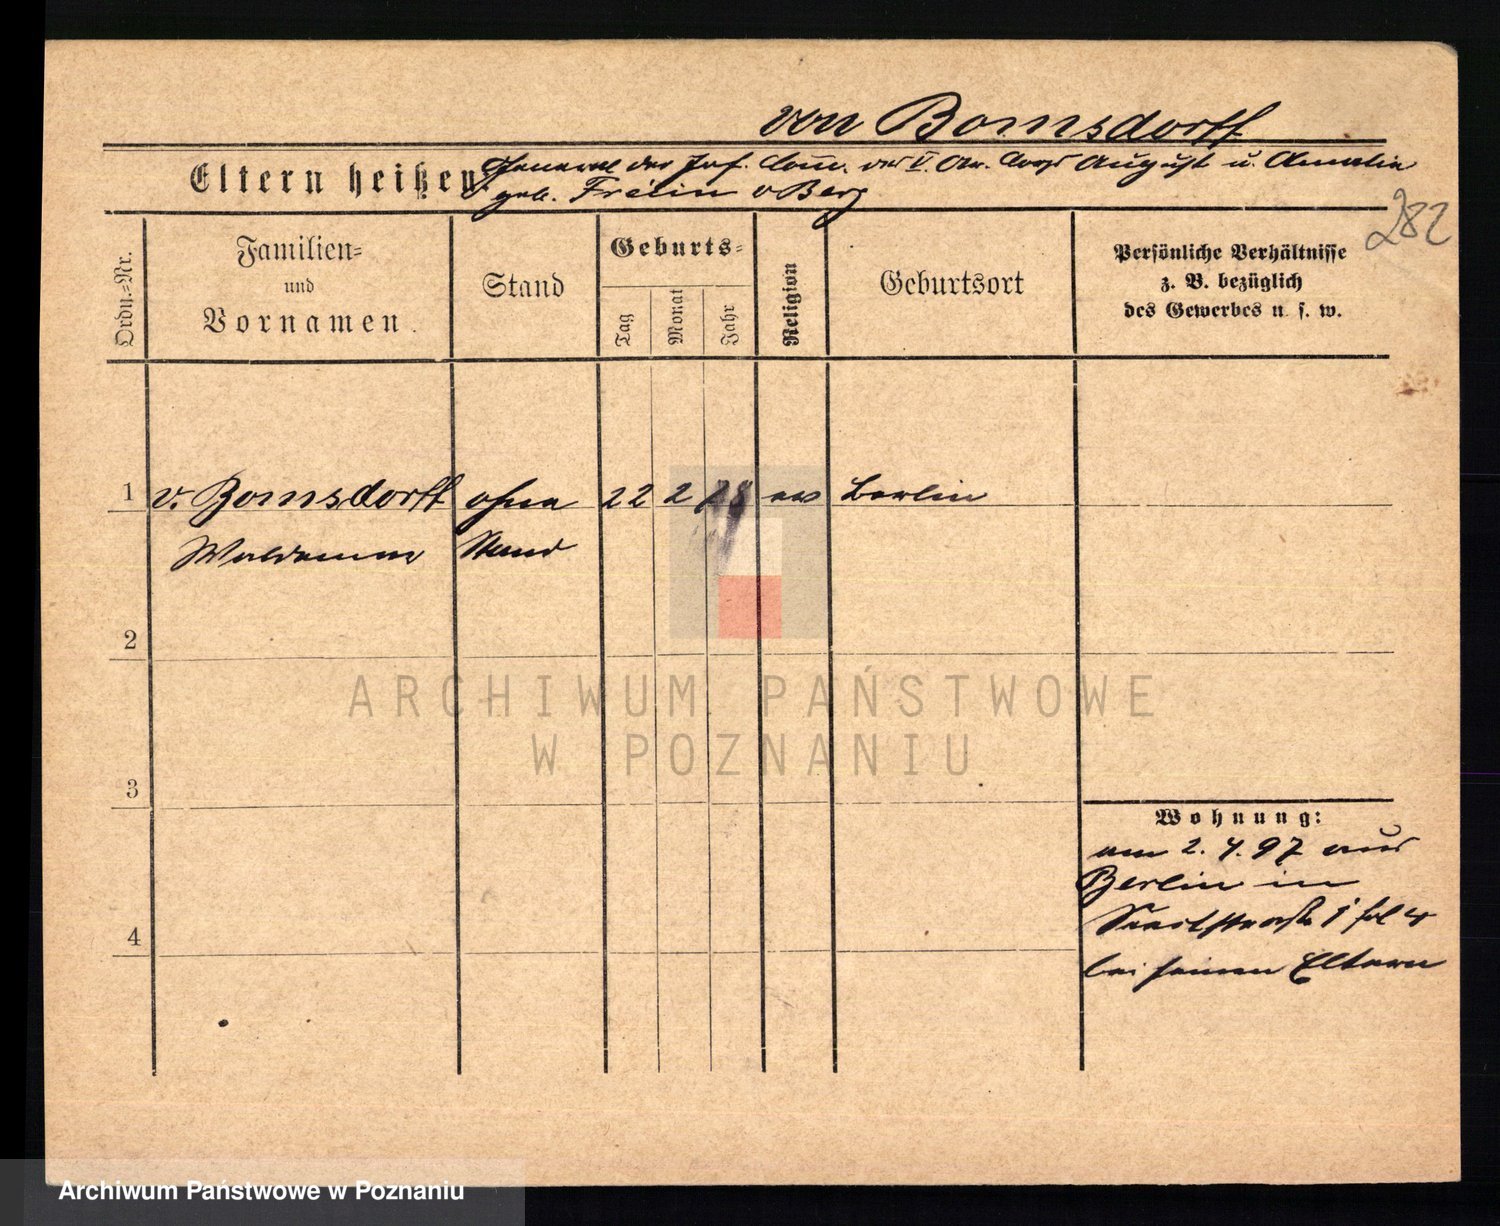 von Bomsdorff
Eltern heißen General der Inf. Com. des V. Ar. Corps August u. Amalie
geb. Freiin v Berg
282
Ordn.-Nr.
Familien-
und
Vornamen.
Stand
Geburts-
Tag
Monat
Jahr
Religion
Geburtsort
Persönliche Verhältnisse
z. B. bezüglich
des Gewerbes u. s. w.
1 v. Bomsdorff ohne 22 2 78 ev Berlin
Waldemar Stand
2
ARCHIWUM PAŃSTWOWE
W POZNANIU
3
Wohnung:
am 2. 4. 97 aus
Berlin in
1
4
bei seinen Eltern
Archiwum Państwowe w Poznaniu